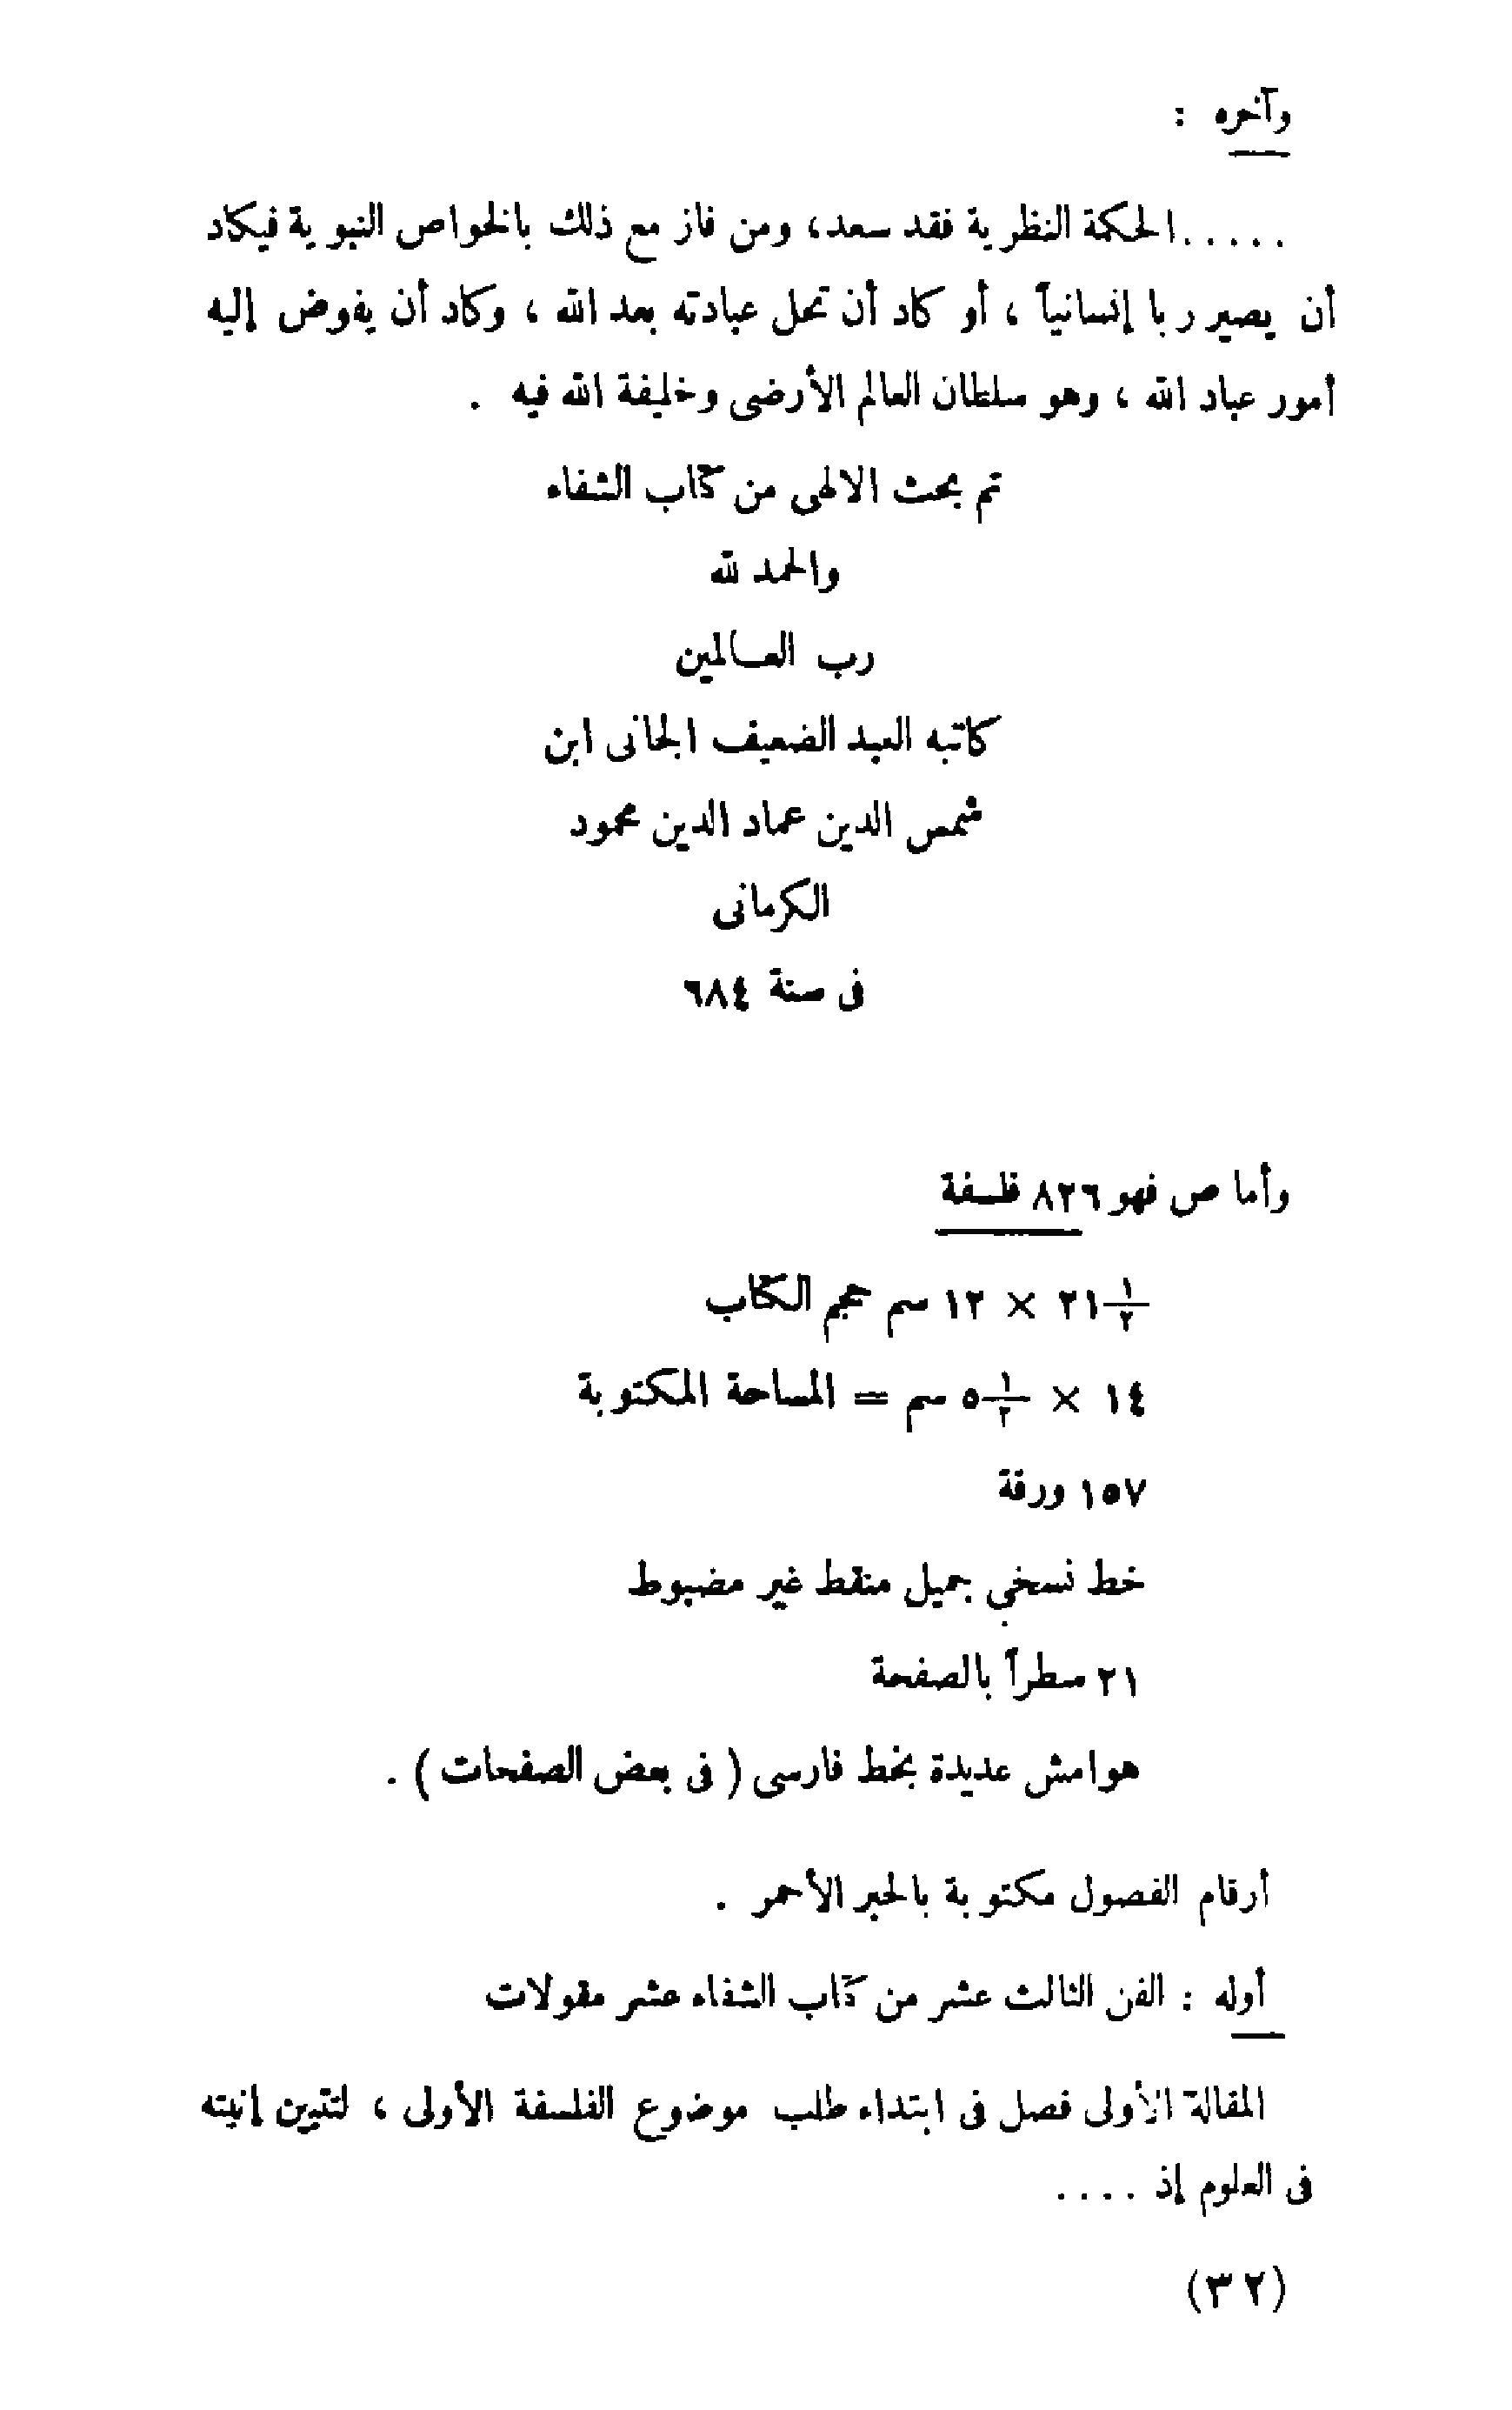 وآخره :
.....الحكمة النظرية فقد سعد، ومن فاز مع ذلك بالخواص النبوية فيكاد
أن يصير ربا إنسانياً ، أو كاد أن تحل عبادته بعد الله ، وكاد أن يفوض إليه
أمور عباد الله ، وهو سلطان العالم الأرضى وخليفة الله فيه .
تم بحث الالهى من كتاب الشفاء
والحمد لله
رب العـالمين
كاتبه العبد الضعيف الجانى ابن
شمس الدين عماد الدين محمود
الكرمانى
فى سنة ٦٨٤
وأما ص فهو ٨٢٦ فلسفة
٢١ ١/٢ × ١٢ سم حجم الكتاب
١٤ × ٥ ١/٢ سم = المساحة المكتوبة
١٥٧ ورقة
خط نسخي جميل منقط غير مضبوط
٢١ سطراً بالصفحة
هوامش عديدة بخط فارسى ( فى بعض الصفحات ) .
أرقام الفصول مكتوبة بالحبر الأحمر .
أوله : الفن الثالث عشر من كتاب الشفاء عشر مقولات
المقالة الأولى فصل فى ابتداء طلب موضوع الفلسفة الأولى ، لتتبين إنيته
فى العلوم إذ ....
(٣٢)